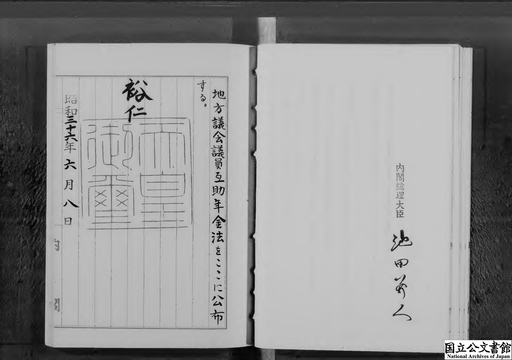 地方議会議員互助年金法をここに公布
する。
裕仁
天皇
御璽
昭和三十六年六月八日
内閣
内閣総理大臣
池田勇人
国立公文書館
National Archives of Japan